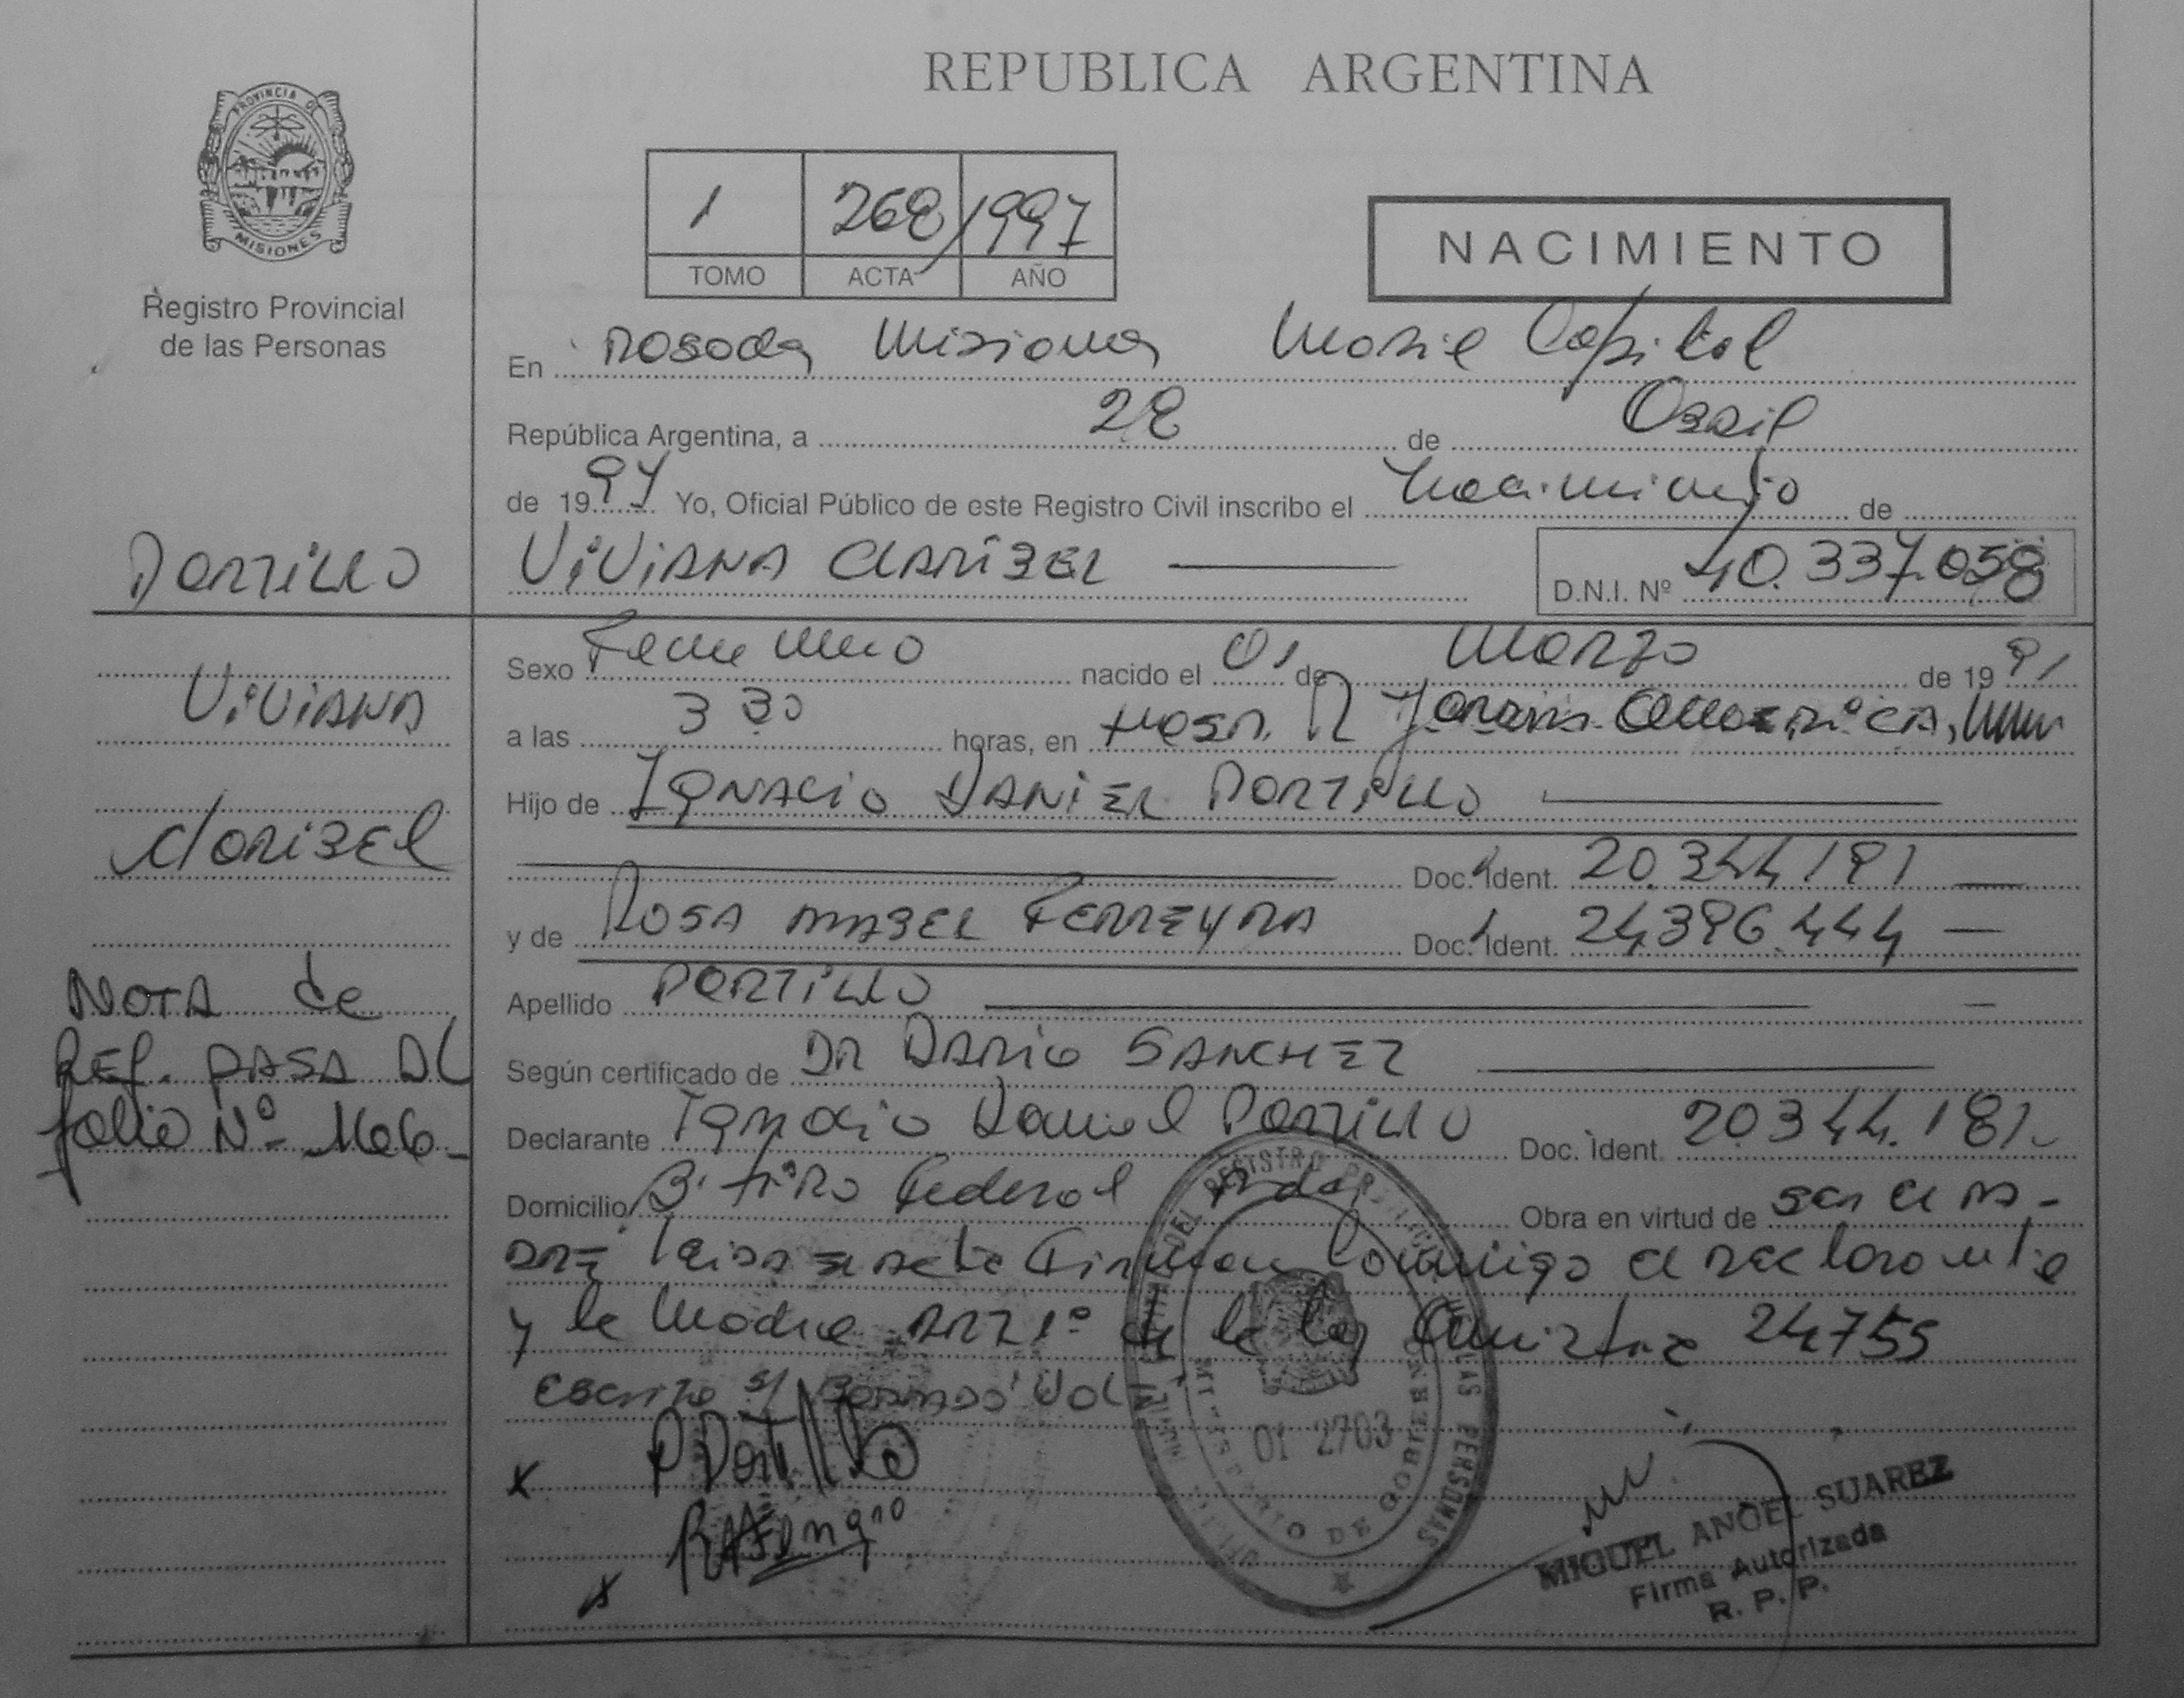 REPUBLICA ARGENTINA
PROVINCIA DE
MISIONES
Registro Provincial
de las Personas
1 268/1997
TOMO ACTA AÑO
NACIMIENTO
En Posadas Misiones Capital
República Argentina, a 28 de Abril
de 1997 Yo, Oficial Público de este Registro Civil inscribo el Nacimiento de
PORTILLO
VIVIANA CLARIBEL
D.N.I. Nº 40.337.058
Sexo Femenino nacido el 01 de Marzo de 19
VIVIANA
a las 3 30 horas, en Hosp. R
Hijo de IGNACIO DANIEL PORTILLO
CLARIBEL
Doc. Ident. 20.344.181
y de ROSA MABEL FERREYRA Doc. Ident. 24.396.444
NOTA de
Apellido PORTILLO
REF. PASA AL
Según certificado de DR DARIO SANCHEZ
folio Nº 166
Declarante Ignacio Daniel Portillo Doc. Ident. 20.344.181
Domicilio Bº Federal Pdas. Obra en virtud de ser el pa-
dre leida el acta Firman conmigo el declarante
y la Madre ART 1º de la ley 24755
Escrito s/ Borrado VOL
P Portillo
REGISTRO PROVINCIAL DE LAS PERSONAS
MINISTERIO DE GOBIERNO
01 2703
MIGUEL ANGEL SUAREZ
Firma Autorizada
R. P. P.